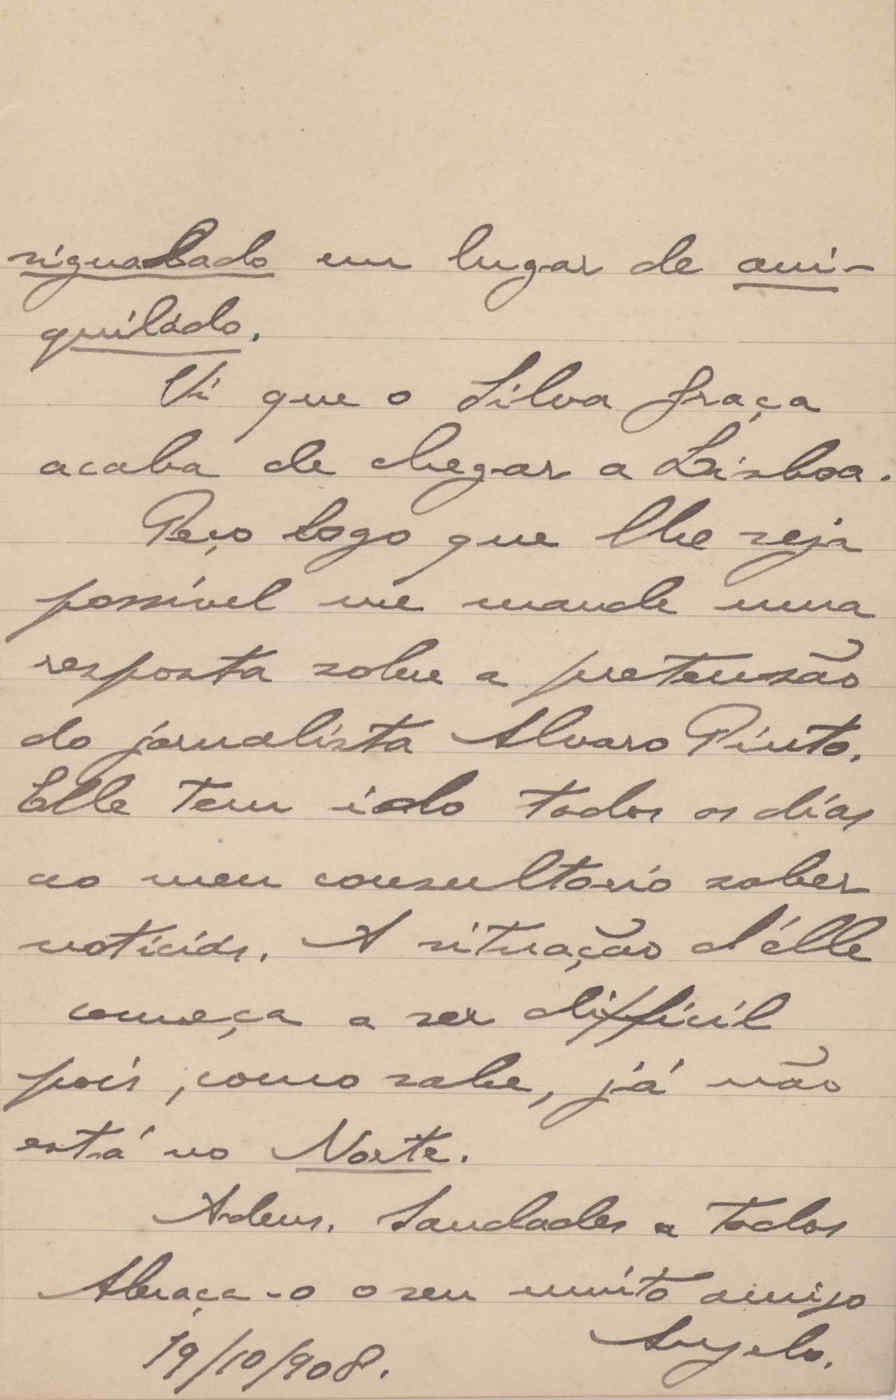 signalado em lugar de ani-
quilado.
Vi que o Silva Graça
acaba de chegar a Lisboa.
Peço logo que lhe seja
possivel me mande uma
resposta sobre a pretensão
do jornalista Alvaro Pinto.
Elle tem ido todos os dias
ao meu consultorio saber
noticias. A situação d'élle
começa a ser difficil
pois, como sabe, já não
está no Norte.
Adeus. Saudades a todos
Abraça-o o seu muito amigo
19/10/908. Angelo.